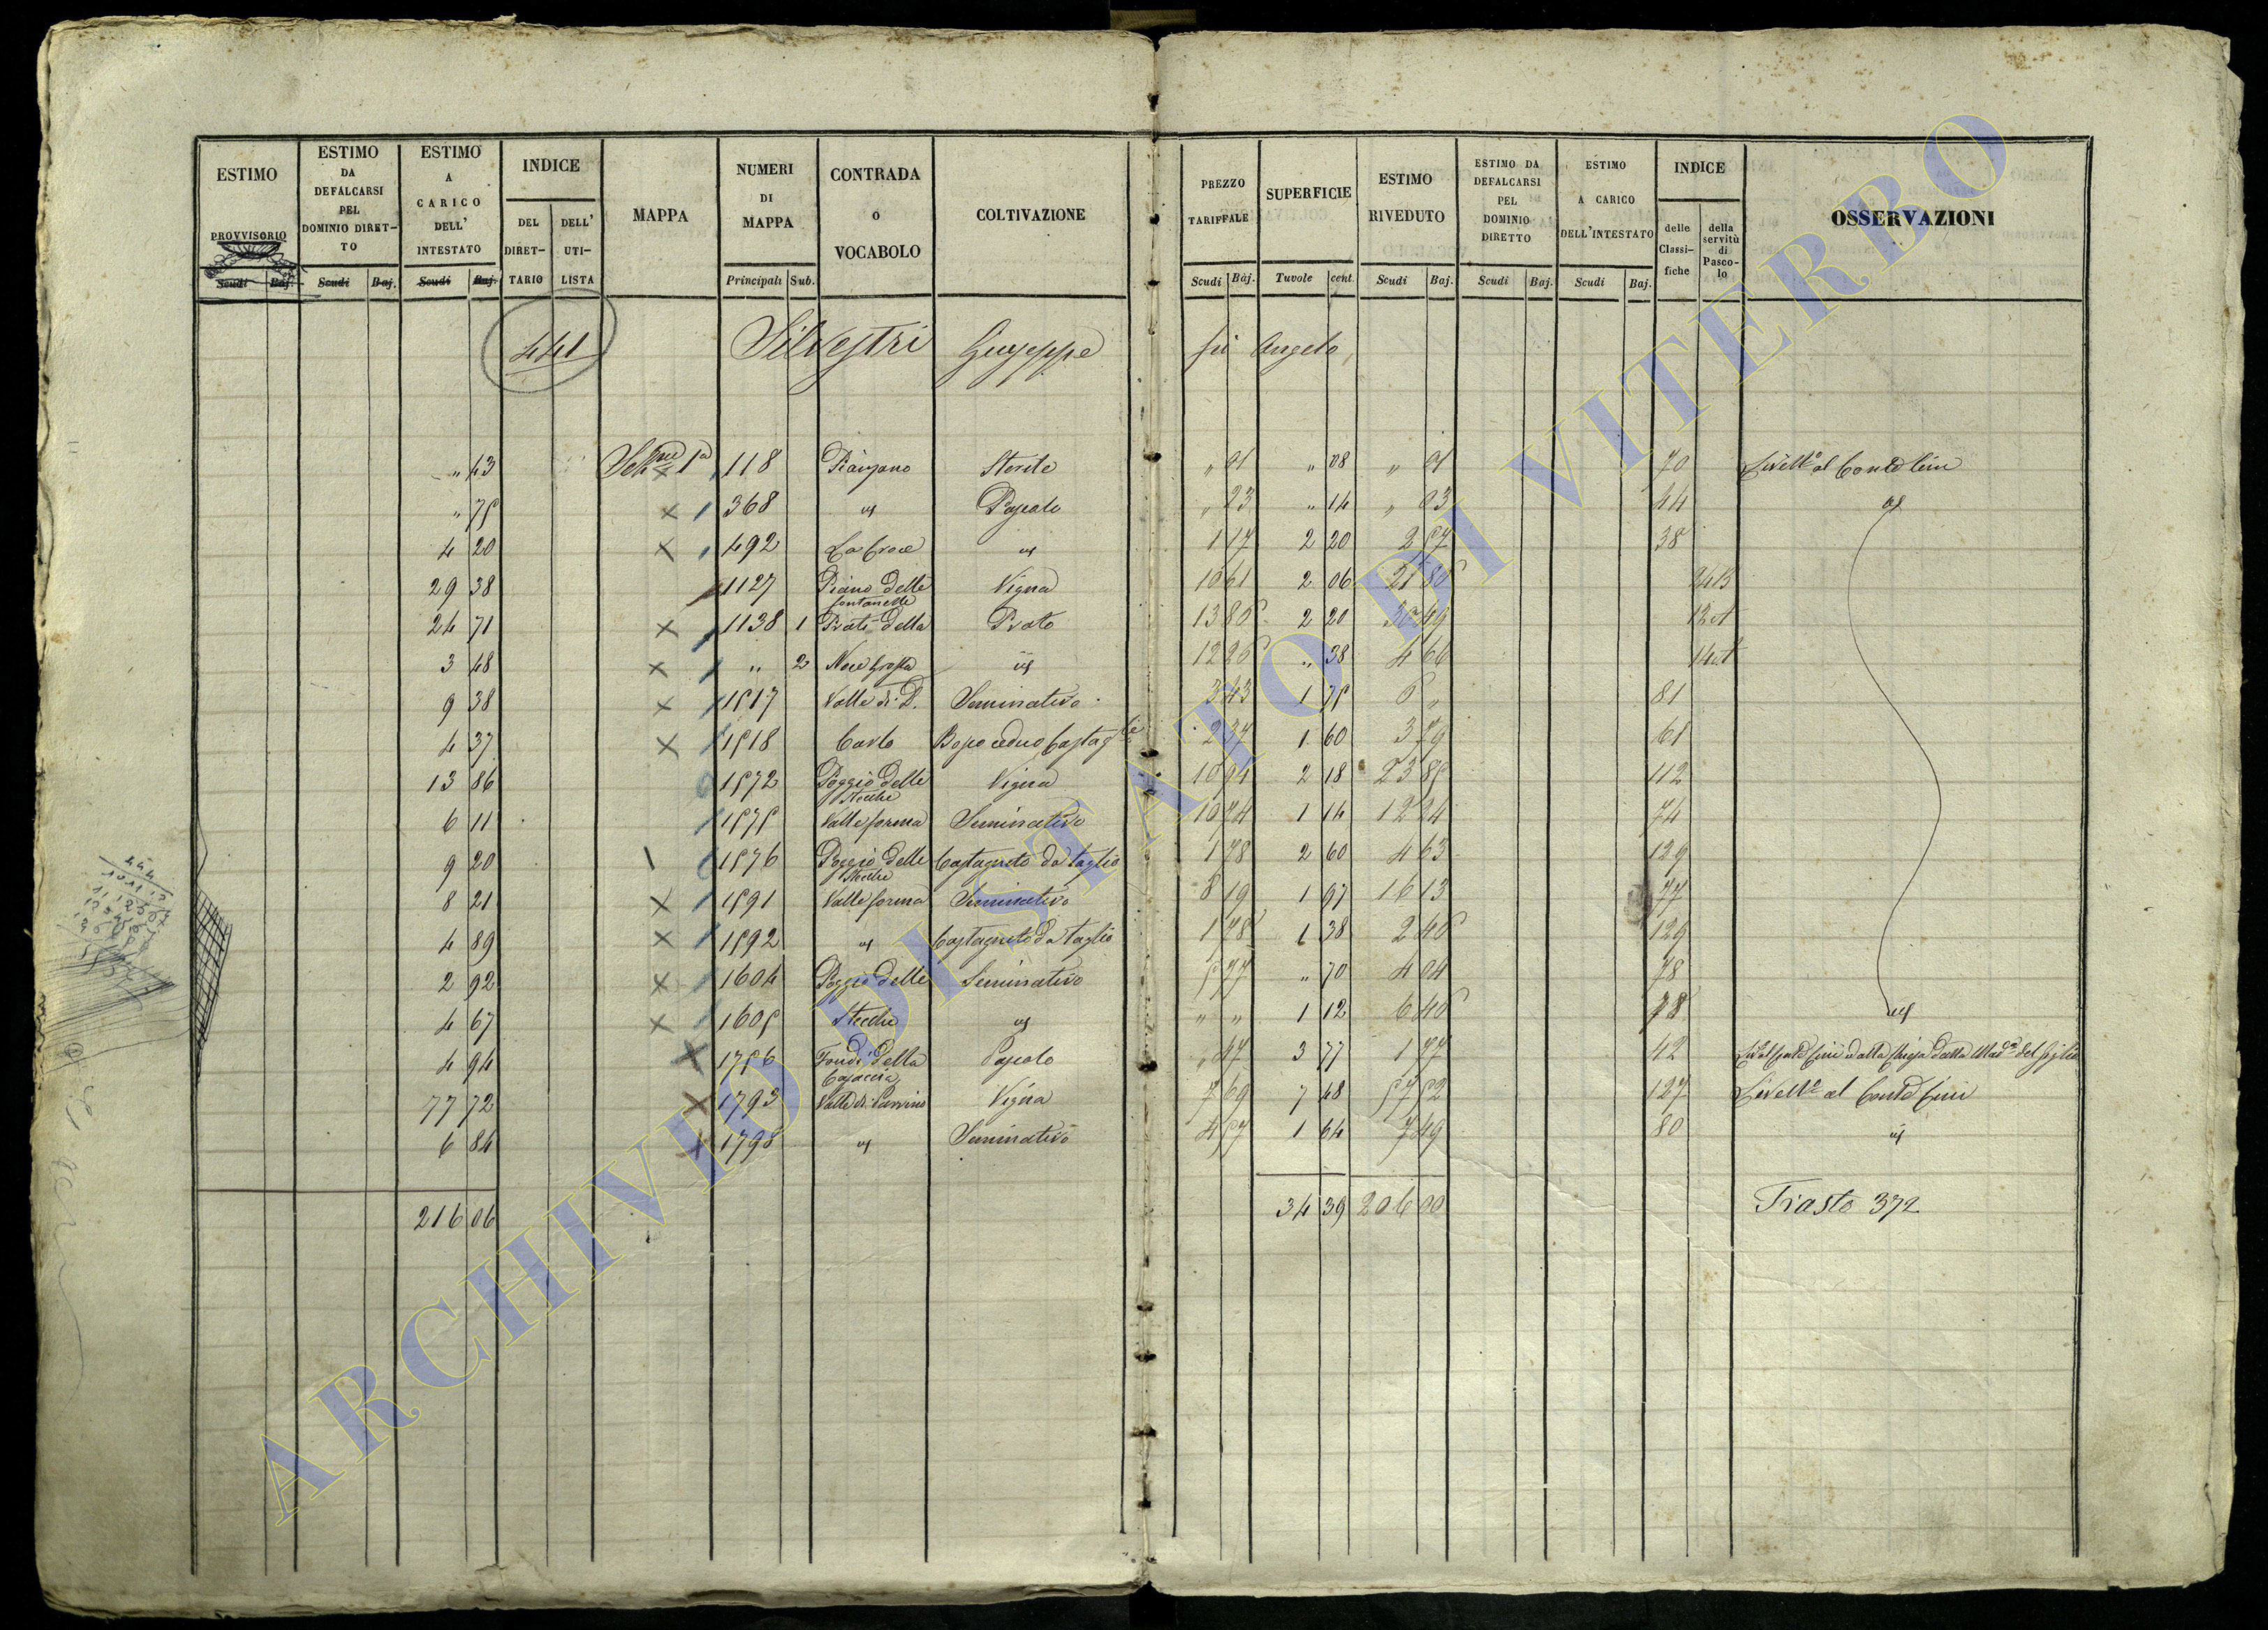 ESTIMO PROVVISORIO Scudi Baj.
ESTIMO DA DEFALCARSI PEL DOMINIO DIRET-TO Scudi Baj.
ESTIMO A CARICO DELL' INTESTATO Scudi Baj.
INDICE DEL DIRET-TARIO DELL' UTI-LISTA
MAPPA
NUMERI DI MAPPA Principali Sub.
CONTRADA O VOCABOLO
COLTIVAZIONE
PREZZO TARIFFALE Scudi Baj.
SUPERFICIE Tavole cent.
ESTIMO RIVEDUTO Scudi Baj.
ESTIMO DA DEFALCARSI PEL DOMINIO DIRETTO Scudi Baj.
ESTIMO A CARICO DELL'INTESTATO Scudi Baj.
INDICE delle Classi-fiche della servitù di Pasco-lo
OSSERVAZIONI
441 Silvestri Giuseppe fu Angelo
" 43 118 Piangano Sterile " 01 " 08 " 01 70 Livell.o al Conte
" 75 368 id Pascolo " 23 " 14 " 03 44 id
4 20 492 La Croce id 1 17 2 20 2 57 38
29 38 1127 Piano delle fontanelle Vigna 10 61 2 06 21 86 24B
24 71 1138 1 Prati della Prato 13 86 2 20 30 49 12A
3 48 " 2 Noce Grossa id 12 26 " 38 4 66 14A
9 38 1517 Valle di D. Seminativo 3 43 1 75 6 " 81
4 37 1518 Carlo Bosco ceduo Castag.le 2 37 1 60 3 79 61
13 86 1572 Poggio delle Stecche Vigna 10 94 2 18 23 85 112
6 11 1575 Valle forma Seminativo 10 74 1 14 12 24 74
9 20 1576 Poggio delle Stecche Castagneto da taglio 1 78 2 60 4 63 129
8 21 1591 Valle forma Seminativo 8 19 1 97 16 13 77
4 89 1592 id Castagneto da taglio 1 78 1 38 2 46 129
2 92 1604 Poggio delle Seminativo 5 77 " 70 4 04 78
4 67 1605 Stecche id " " 1 12 6 46 78 id
4 94 1756 Fondi della Pascolo " 47 3 77 1 77 42
77 72 1793 Valle di Vigna 7 69 7 48 57 52 127 Livell.o al Conte
6 84 1798 id Seminativo 4 57 1 64 7 49 80 id
216 06 34 39 206 00 Trasto 372
ARCHIVIO DI STATO DI VITERBO